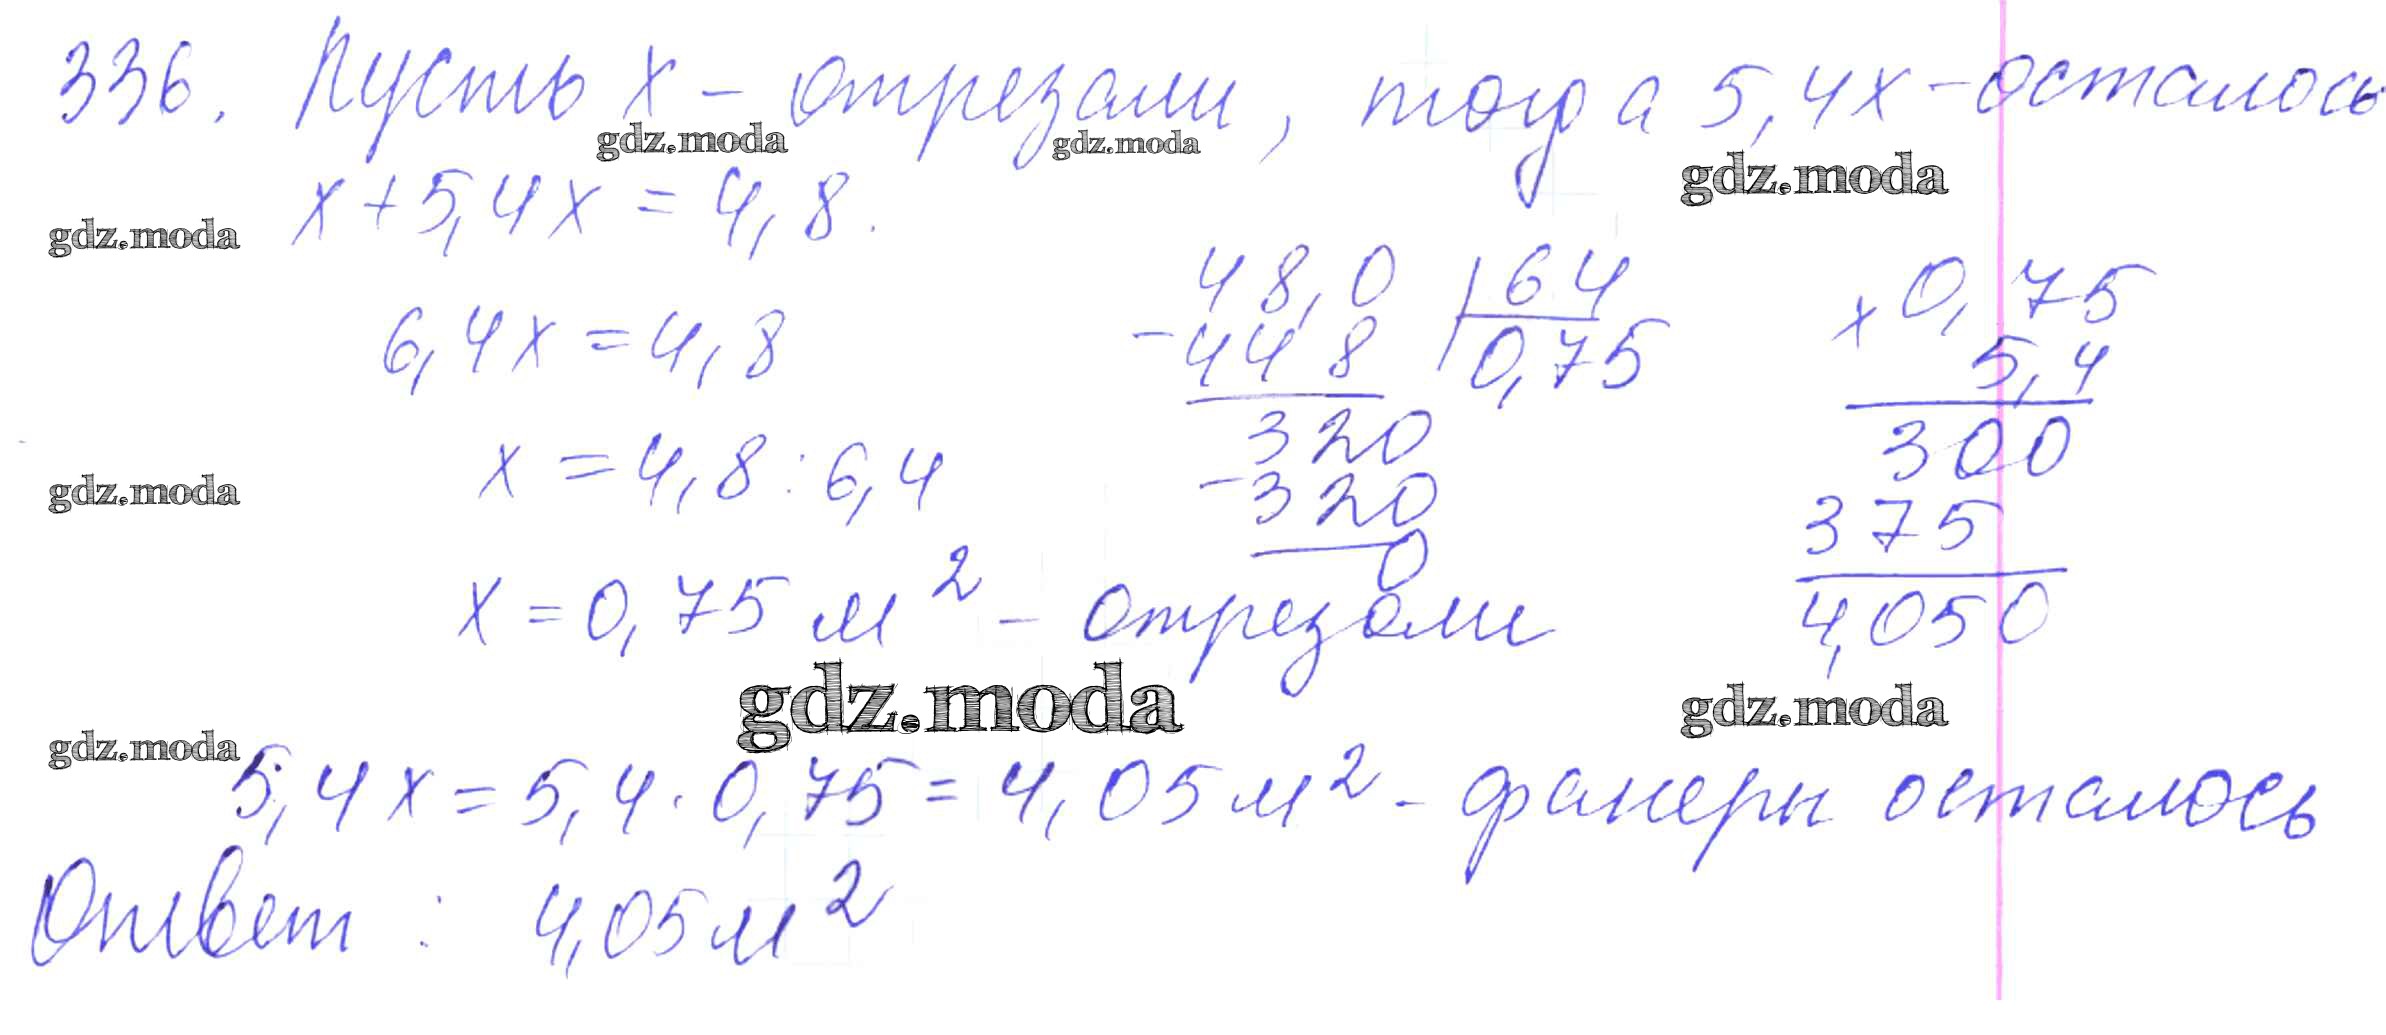 336. Пусть x – отрезали, тогда 5,4x – осталось
gdz.moda gdz.moda gdz.moda
x + 5,4x = 4,8.
gdz.moda
6,4x = 4,8
x = 4,8 : 6,4
gdz.moda
x = 0,75 м² – отрезали
48,0 | 64
– 448 | 0,75
320
– 320
0
x 0,75
5,4
300
375
4,050
gdz.moda gdz.moda
gdz.moda
5,4x = 5,4 · 0,75 = 4,05 м² – фанеры осталось
Ответ : 4,05 м²